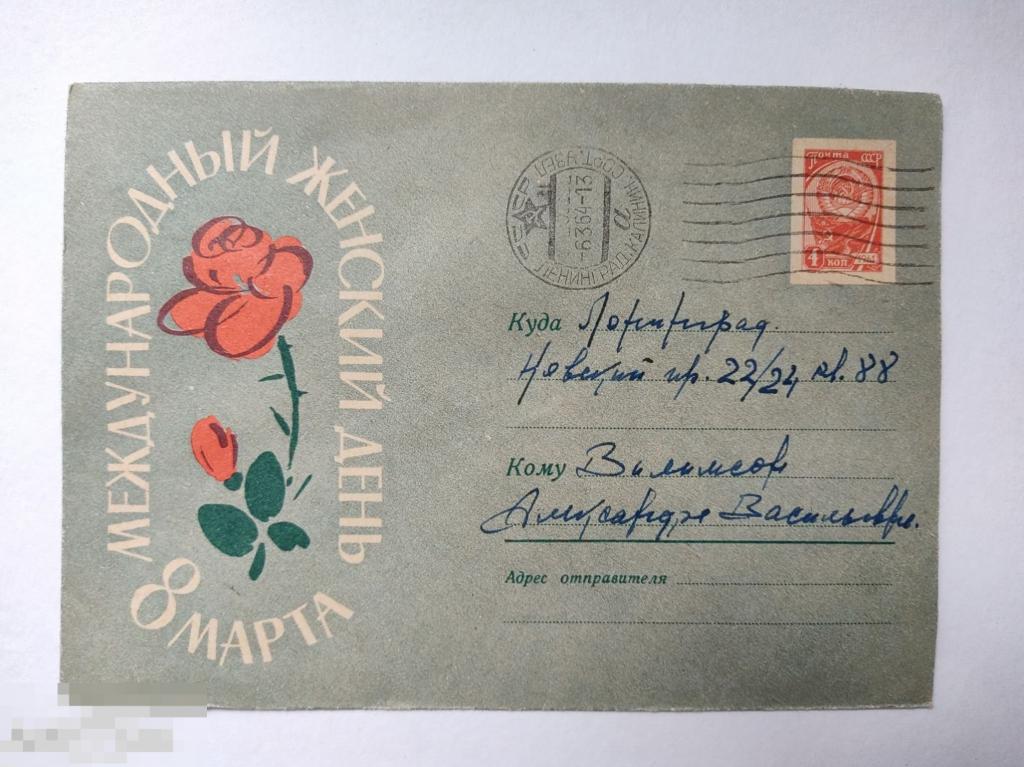 МЕЖДУНАРОДНЫЙ ЖЕНСКИЙ ДЕНЬ
8 МАРТА
СССР ЛЕНИНГРАД. КАЛИНИН. СОРТ. УЗЕЛ
-6364-13
а
почта СССР
4 коп
Куда Ленинград.
Невский пр. 22/24 кв. 88
Кому
Александре Васильевне.
Адрес отправителя